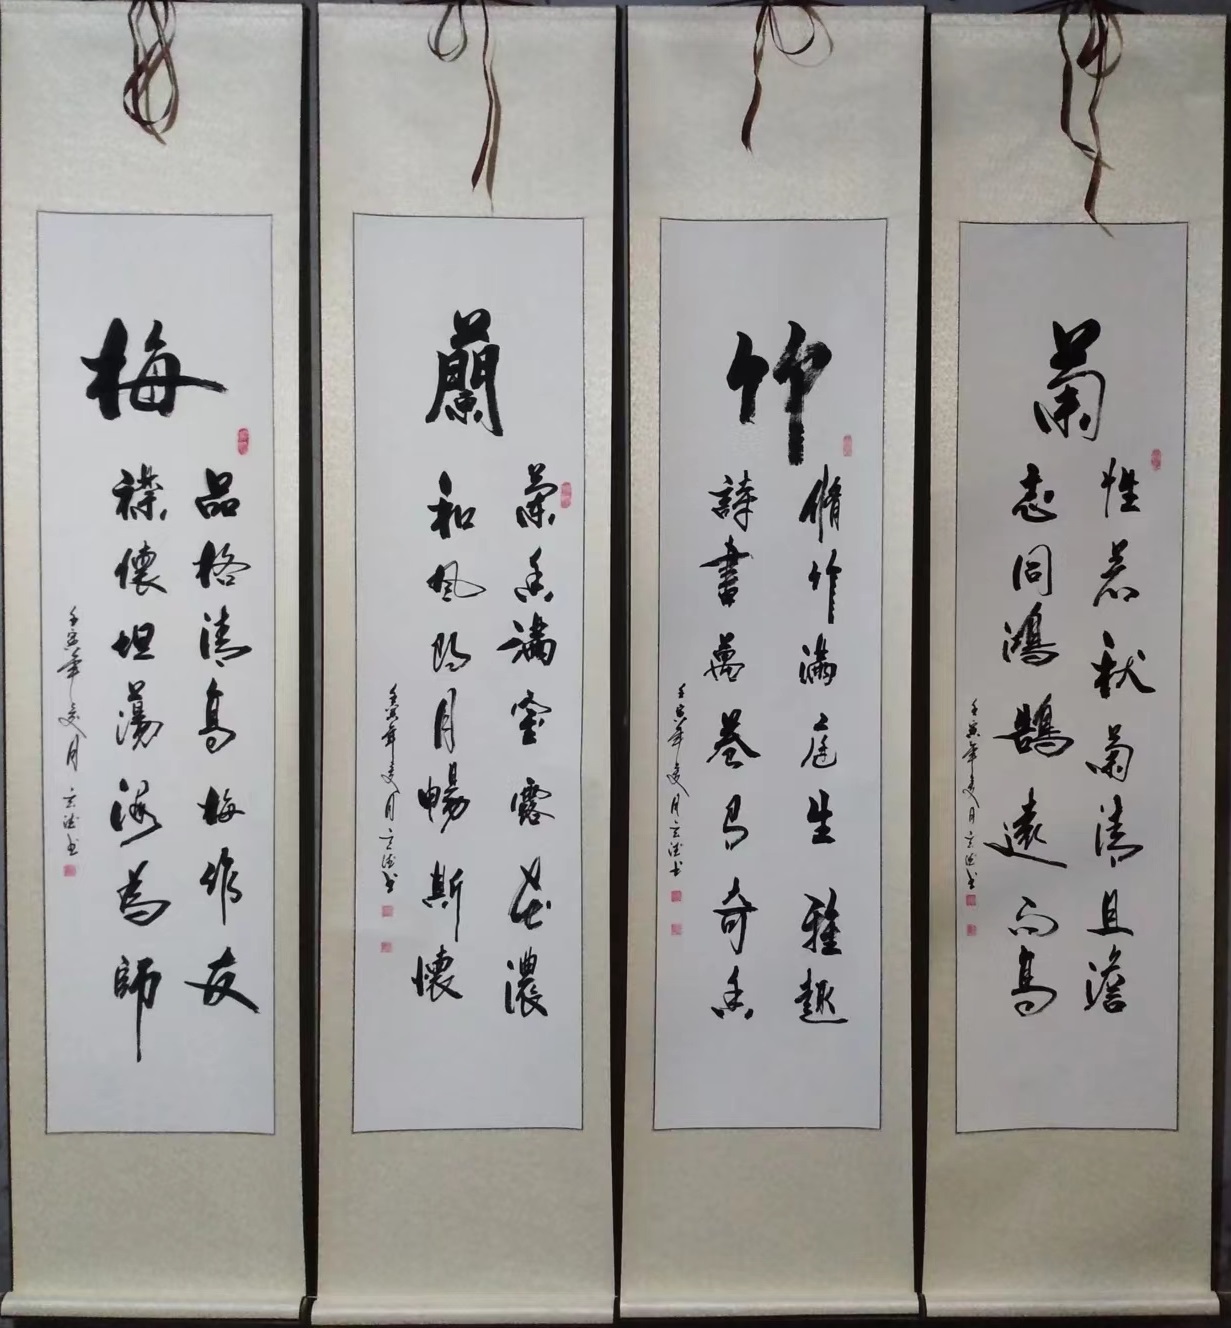 梅
品格清高梅作友
襟懷坦蕩海為師
壬寅年夏月 玄德书
蘭
蘭香滿室露花濃
和風朗月暢斯懷
壬寅年夏月玄德书
竹
脩竹滿庭生雅趣
詩書萬卷有奇香
壬寅年夏月玄德书
菊
性若秋菊清且澹
志同鴻鵠遠而高
壬寅年夏月玄德书